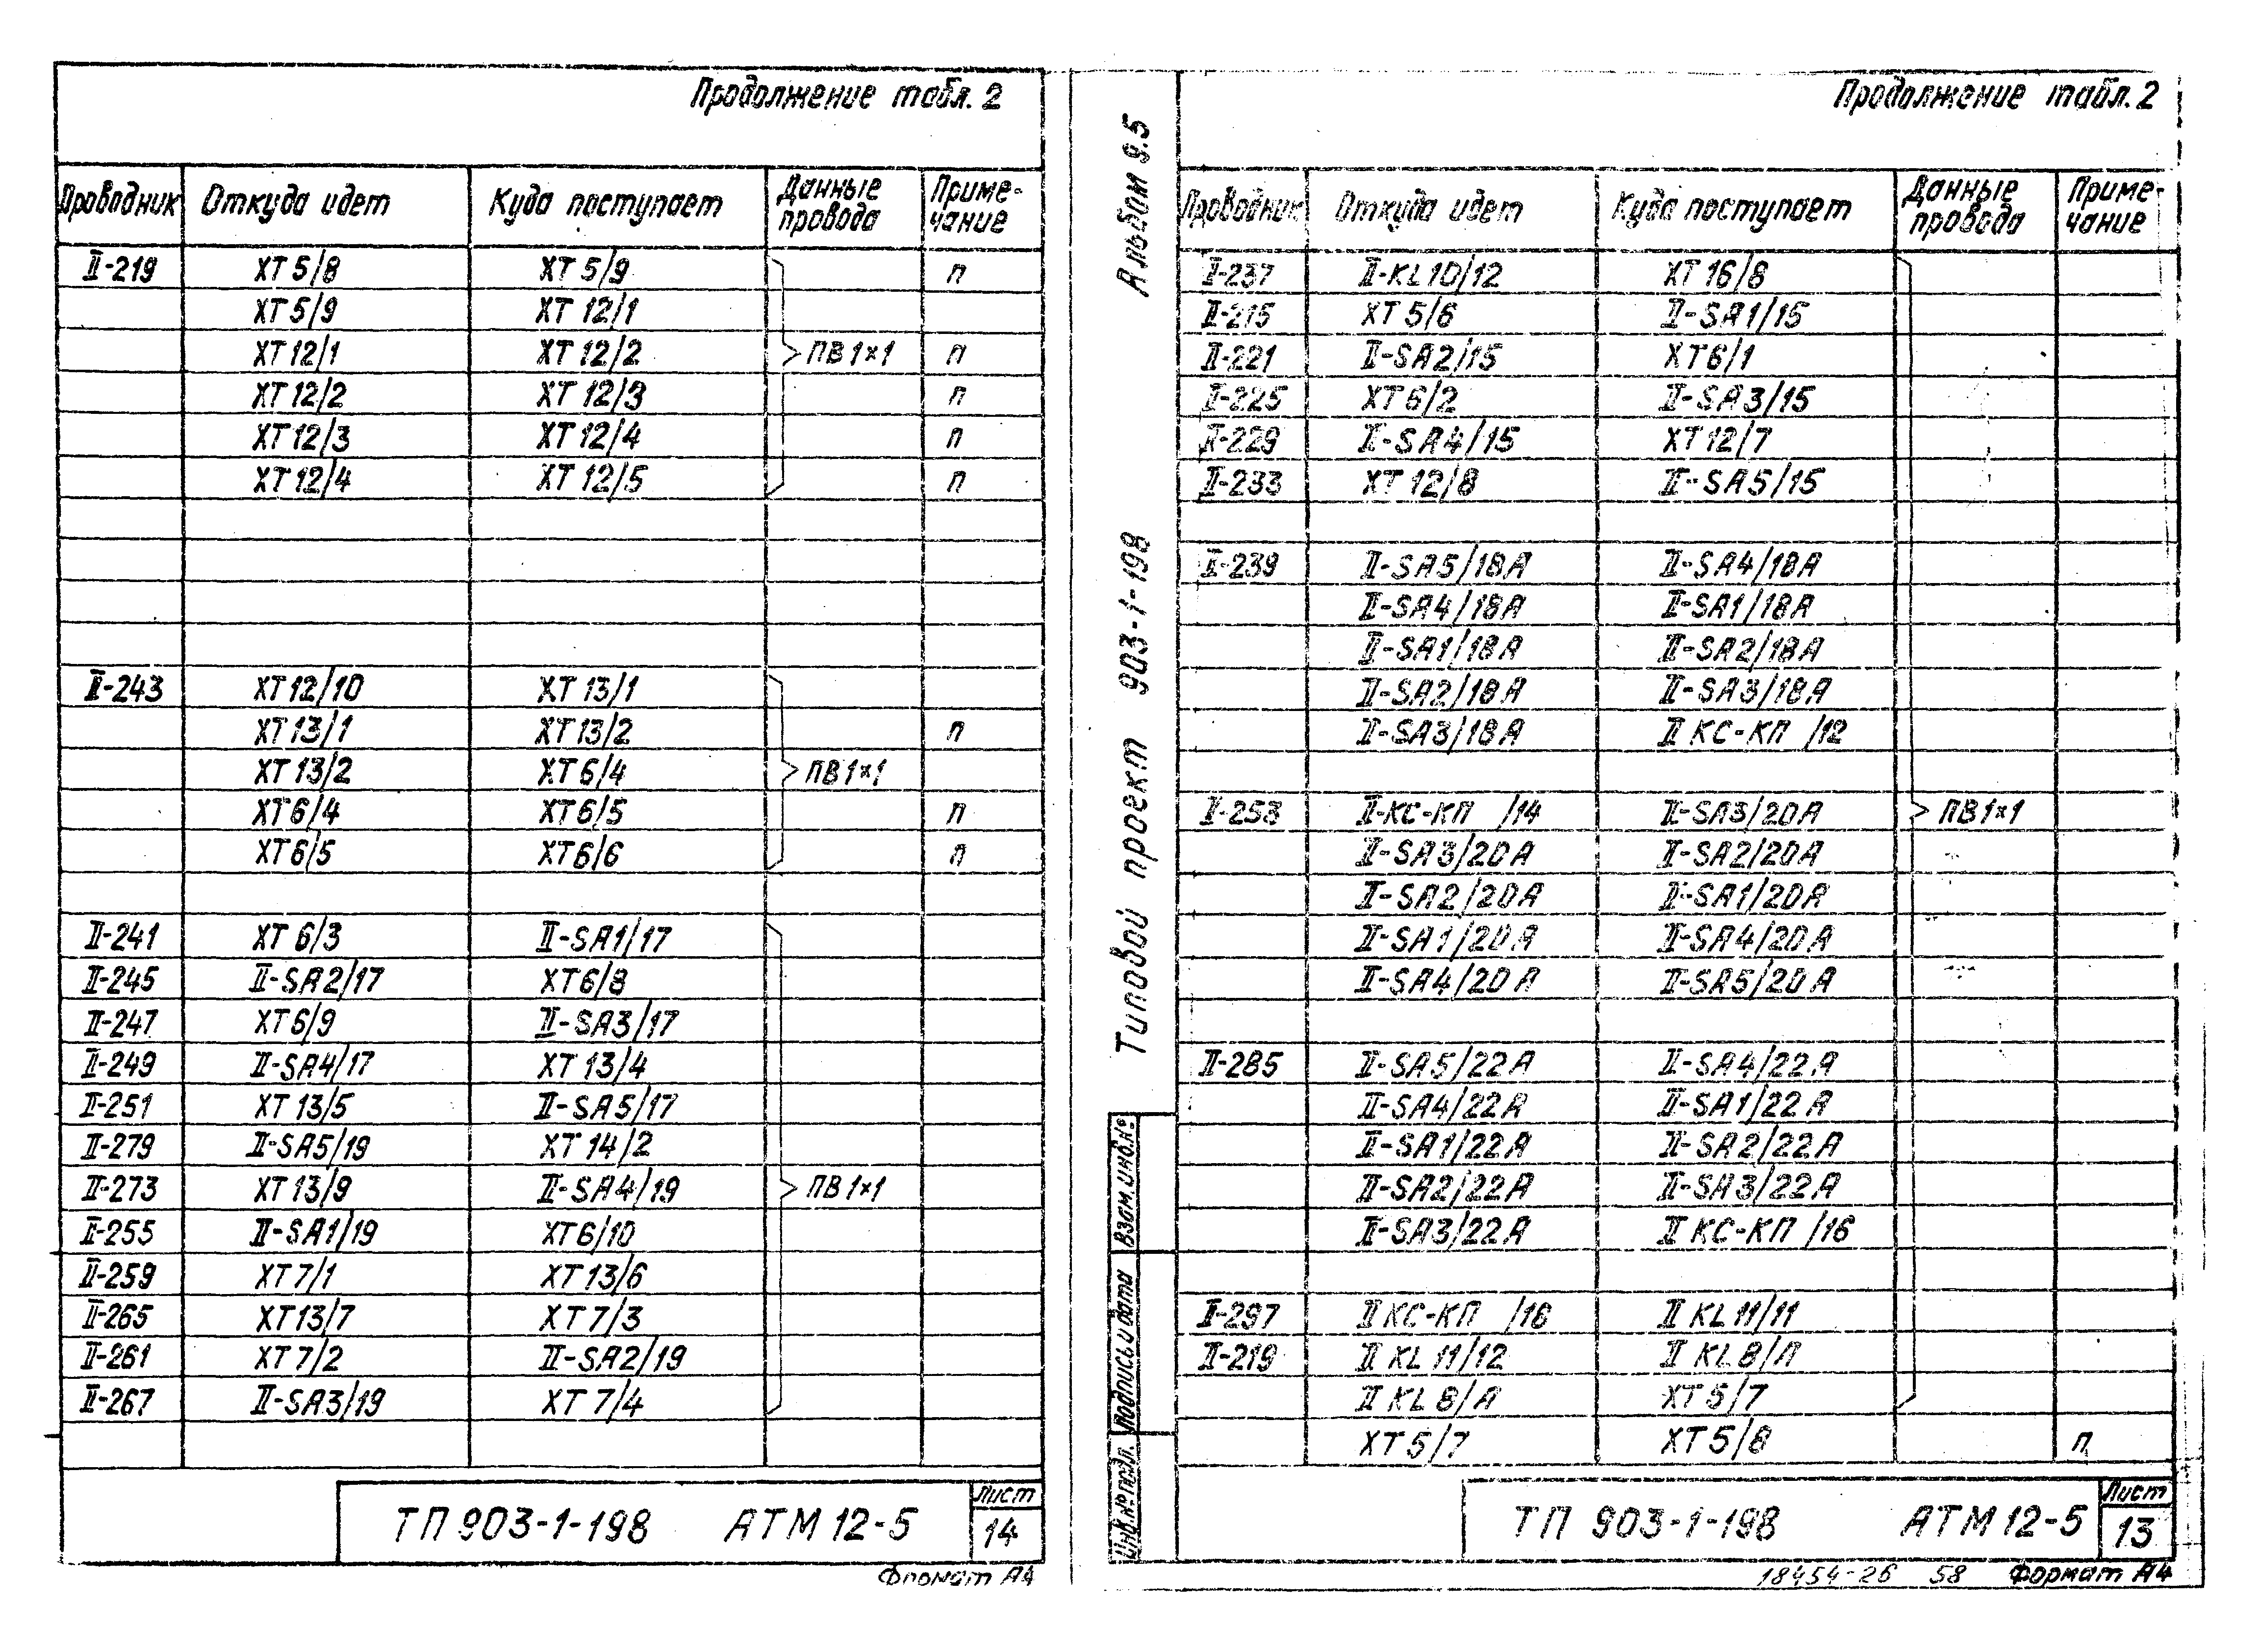 Продолжение табл. 2
Проводник Откуда идет Куда поступает Данные провода Приме-чание
II-219 XT5/8 XT5/9 п
XT5/9 XT12/1
XT12/1 XT12/2 ПВ1×1 п
XT12/2 XT12/3 п
XT12/3 XT12/4 п
XT12/4 XT12/5 п
II-243 XT12/10 XT13/1
XT13/1 XT13/2 п
XT13/2 XT6/4 ПВ1×1
XT6/4 XT6/5 п
XT6/5 XT6/6 п
II-241 XT6/3 II-SA1/17
II-245 II-SA2/17 XT6/8
II-247 XT6/9 II-SA3/17
II-249 II-SA4/17 XT13/4
II-251 XT13/5 II-SA5/17
II-279 II-SA5/19 XT14/2
II-273 XT13/9 II-SA4/19 ПВ1×1
II-255 II-SA1/19 XT6/10
II-259 XT7/1 XT13/6
II-265 XT13/7 XT7/3
II-261 XT7/2 II-SA2/19
II-267 II-SA3/19 XT7/4
ТП 903-1-198 АТМ 12-5
Лист
14
Формат А4
Альбом 9.5
Типовой проект 903-1-198
Взам. инв.№
Подпись и дата
Инв.№ подл.
Продолжение табл. 2
Проводник Откуда идет Куда поступает Данные провода Приме-чание
II-237 II-KL10/12 XT16/8
II-215 XT5/6 II-SA1/15
II-221 II-SA2/15 XT6/1
II-225 XT6/2 II-SA3/15
II-229 II-SA4/15 XT12/7
II-233 XT12/8 II-SA5/15
II-239 II-SA5/18A II-SA4/18A
II-SA4/18A II-SA1/18A
II-SA1/18A II-SA2/18A
II-SA2/18A II-SA3/18A
II-SA3/18A II КС-КП /12
II-253 II-КС-КП /14 II-SA3/20A ПВ1×1
II-SA3/20A II-SA2/20A
II-SA2/20A II-SA1/20A
II-SA1/20A II-SA4/20A
II-SA4/20A II-SA5/20A
II-285 II-SA5/22A II-SA4/22A
II-SA4/22A II-SA1/22A
II-SA1/22A II-SA2/22A
II-SA2/22A II-SA3/22A
II-SA3/22A II КС-КП /16
II-297 II КС-КП /16 II KL11/11
II-219 II KL11/12 II KL8/Л
II KL8/Л XT5/7
XT5/7 XT5/8 п
ТП 903-1-198 АТМ 12-5
Лист
13
18454-26 58 Формат А4